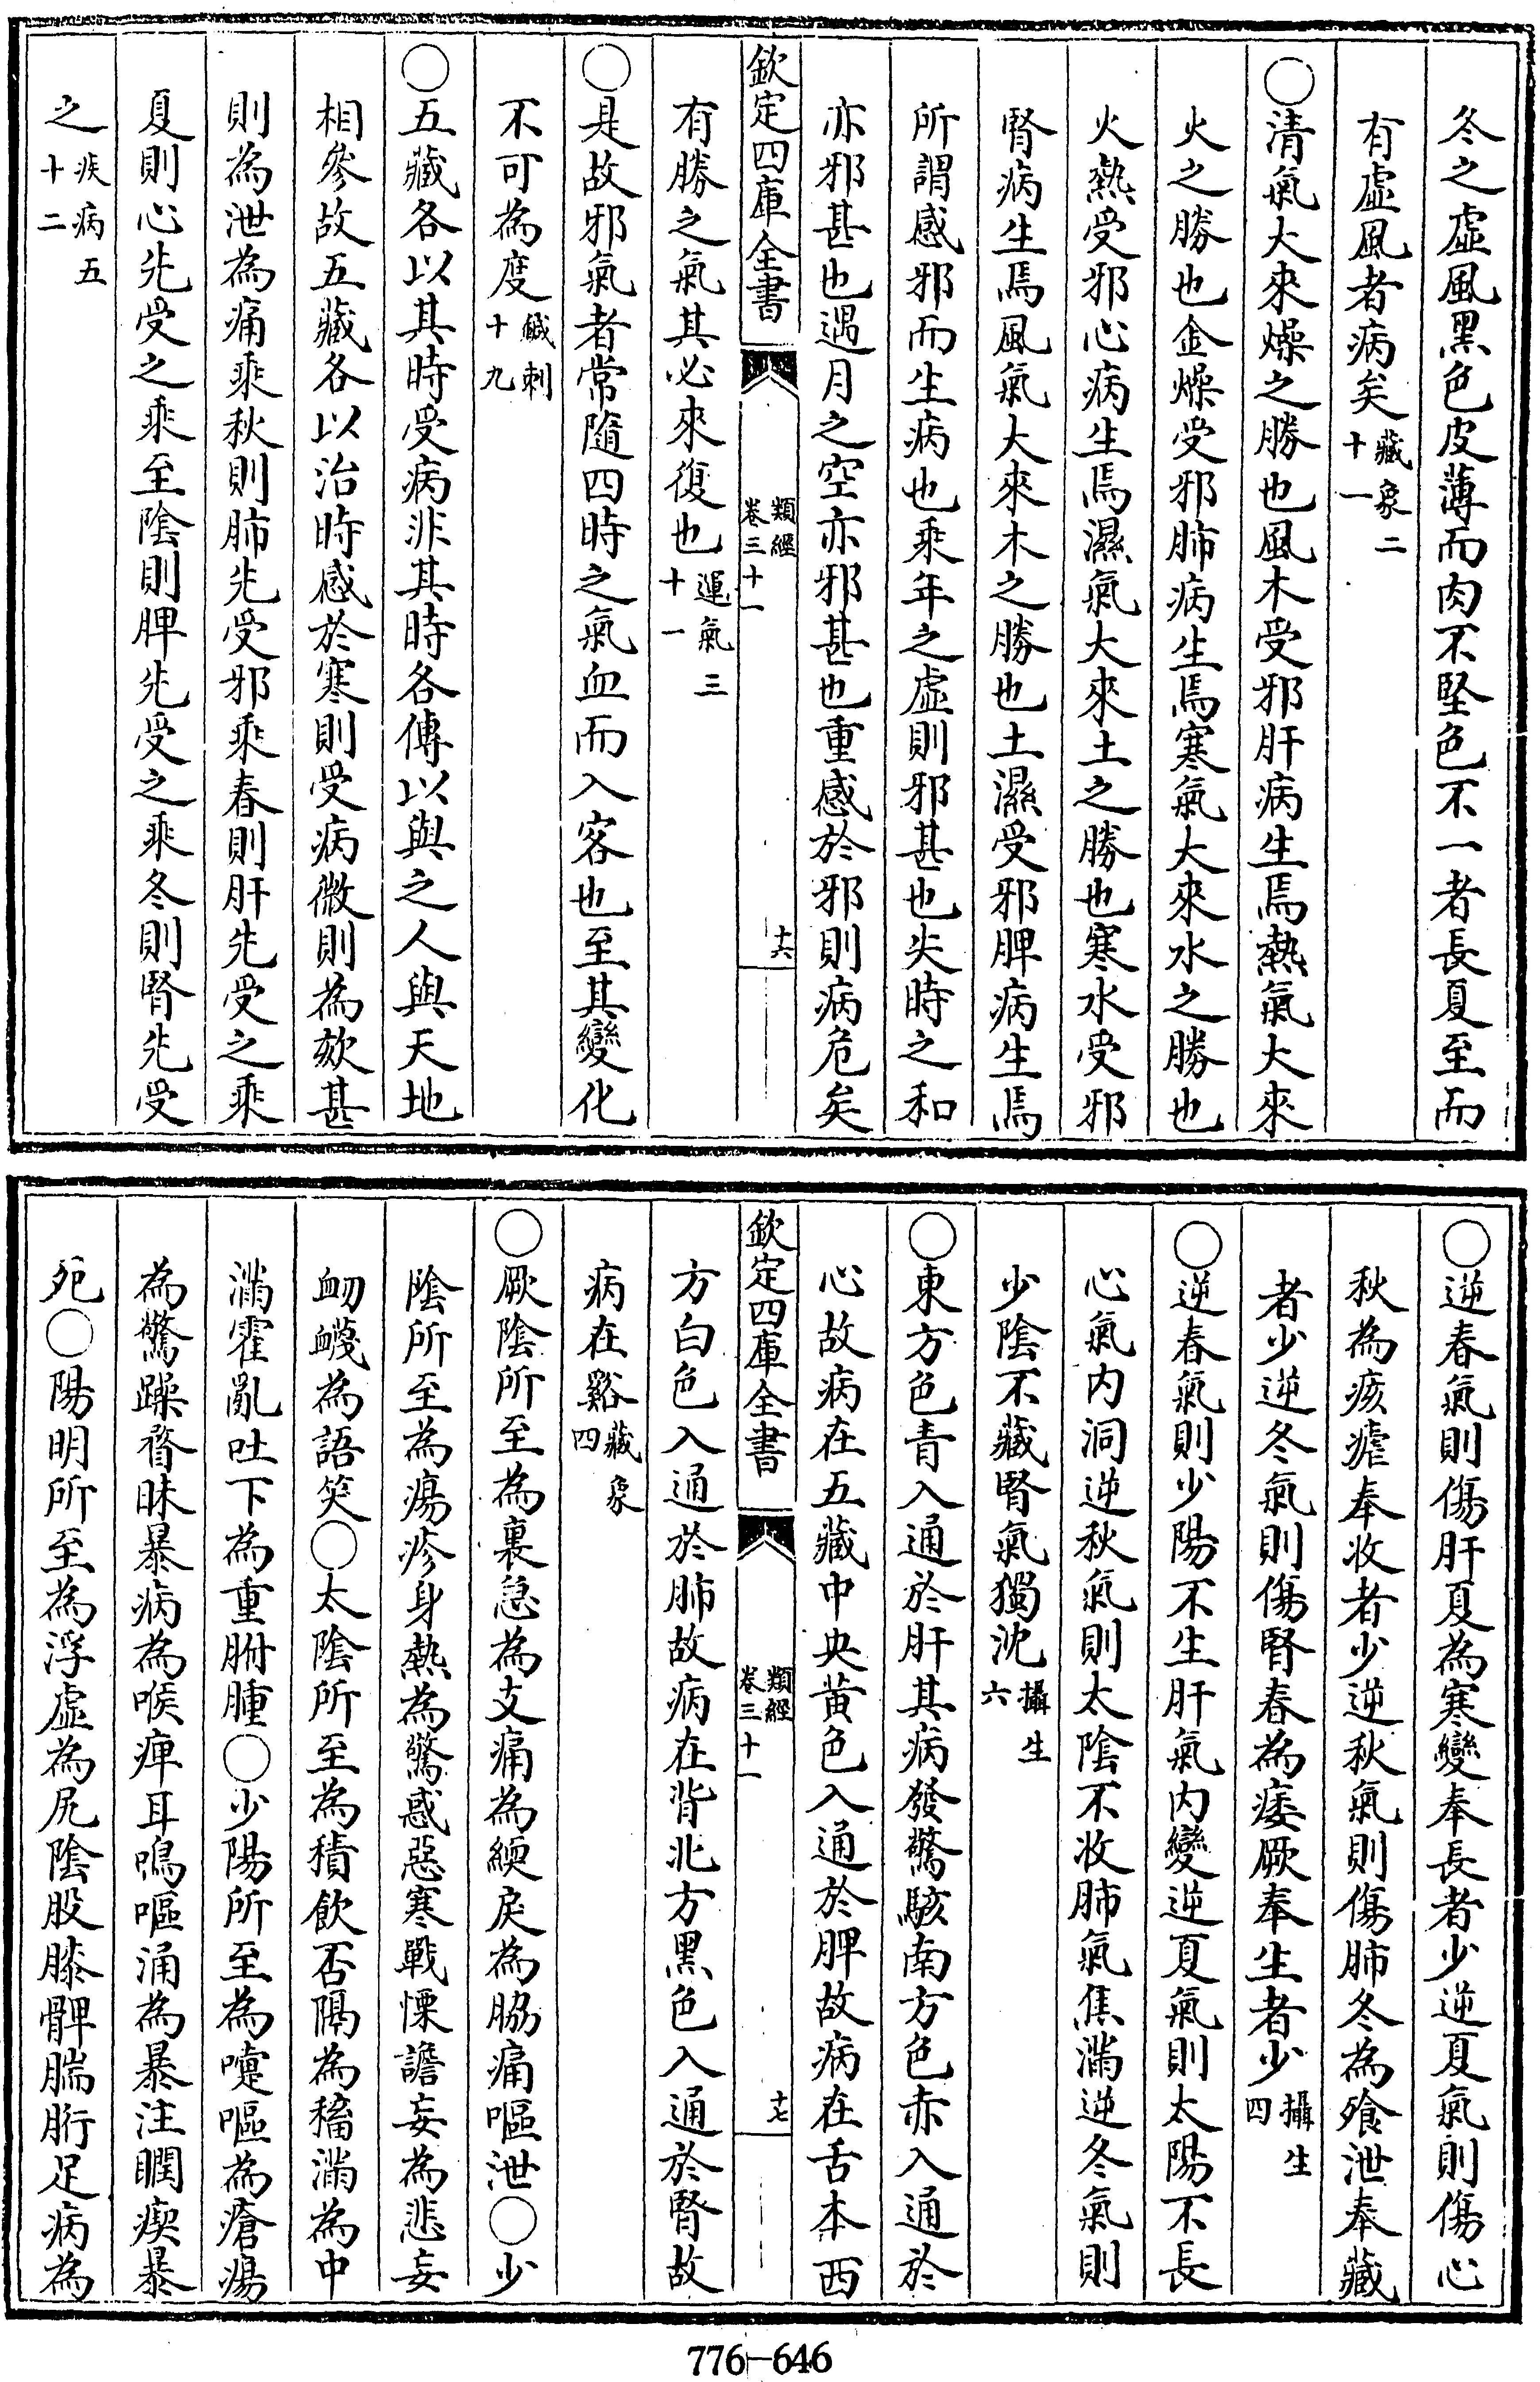 冬之虛風黑色皮薄而肉不堅色不一者長夏至而
有虛風者病矣藏象二十一
○清氣大來燥之勝也風木受邪肝病生焉熱氣大來
火之勝也金燥受邪肺病生焉寒氣大來水之勝也
火熱受邪心病生焉濕氣大來土之勝也寒水受邪
腎病生焉風氣大來木之勝也土濕受邪脾病生焉
所謂感邪而生病也乘年之虛則邪甚也失時之和
亦邪甚也遇月之空亦邪甚也重感於邪則病危矣
欽定四庫全書 類經卷三十一 十六
有勝之氣其必來復也運氣三十一
○是故邪氣者常隨四時之氣血而入客也至其變化
不可為度鍼刺十九
○五藏各以其時受病非其時各傳以與之人與天地
相參故五藏各以治時感於寒則受病微則為欬甚
則為泄為痛乘秋則肺先受邪乘春則肝先受之乘
夏則心先受之乘至陰則脾先受之乘冬則腎先受
之疾病五十二
○逆春氣則傷肝夏為寒變奉長者少逆夏氣則傷心
秋為痎瘧奉收者少逆秋氣則傷肺冬為飱泄奉藏
者少逆冬氣則傷腎春為痿厥奉生者少攝生四
○逆春氣則少陽不生肝氣內變逆夏氣則太陽不長
心氣內洞逆秋氣則太陰不收肺氣焦滿逆冬氣則
少陰不藏腎氣獨沈攝生六
○東方色青入通於肝其病發驚駭南方色赤入通於
心故病在五藏中央黃色入通於脾故病在舌本西
欽定四庫全書 類經卷三十一 十七
方白色入通於肺故病在背北方黑色入通於腎故
病在谿藏象四
○厥陰所至為裏急為支痛為緛戾為脇痛嘔泄○少
陰所至為瘍疹身熱為驚惑惡寒戰慄譫妄為悲妄
衂衊為語笑○太陰所至為積飲否隔為稸滿為中
滿霍亂吐下為重胕腫○少陽所至為嚏嘔為瘡瘍
為驚躁瞀昧暴病為喉痺耳鳴嘔涌為暴注瞤瘈暴
死○陽明所至為浮虛為尻陰股膝髀腨胻足病為
776-646